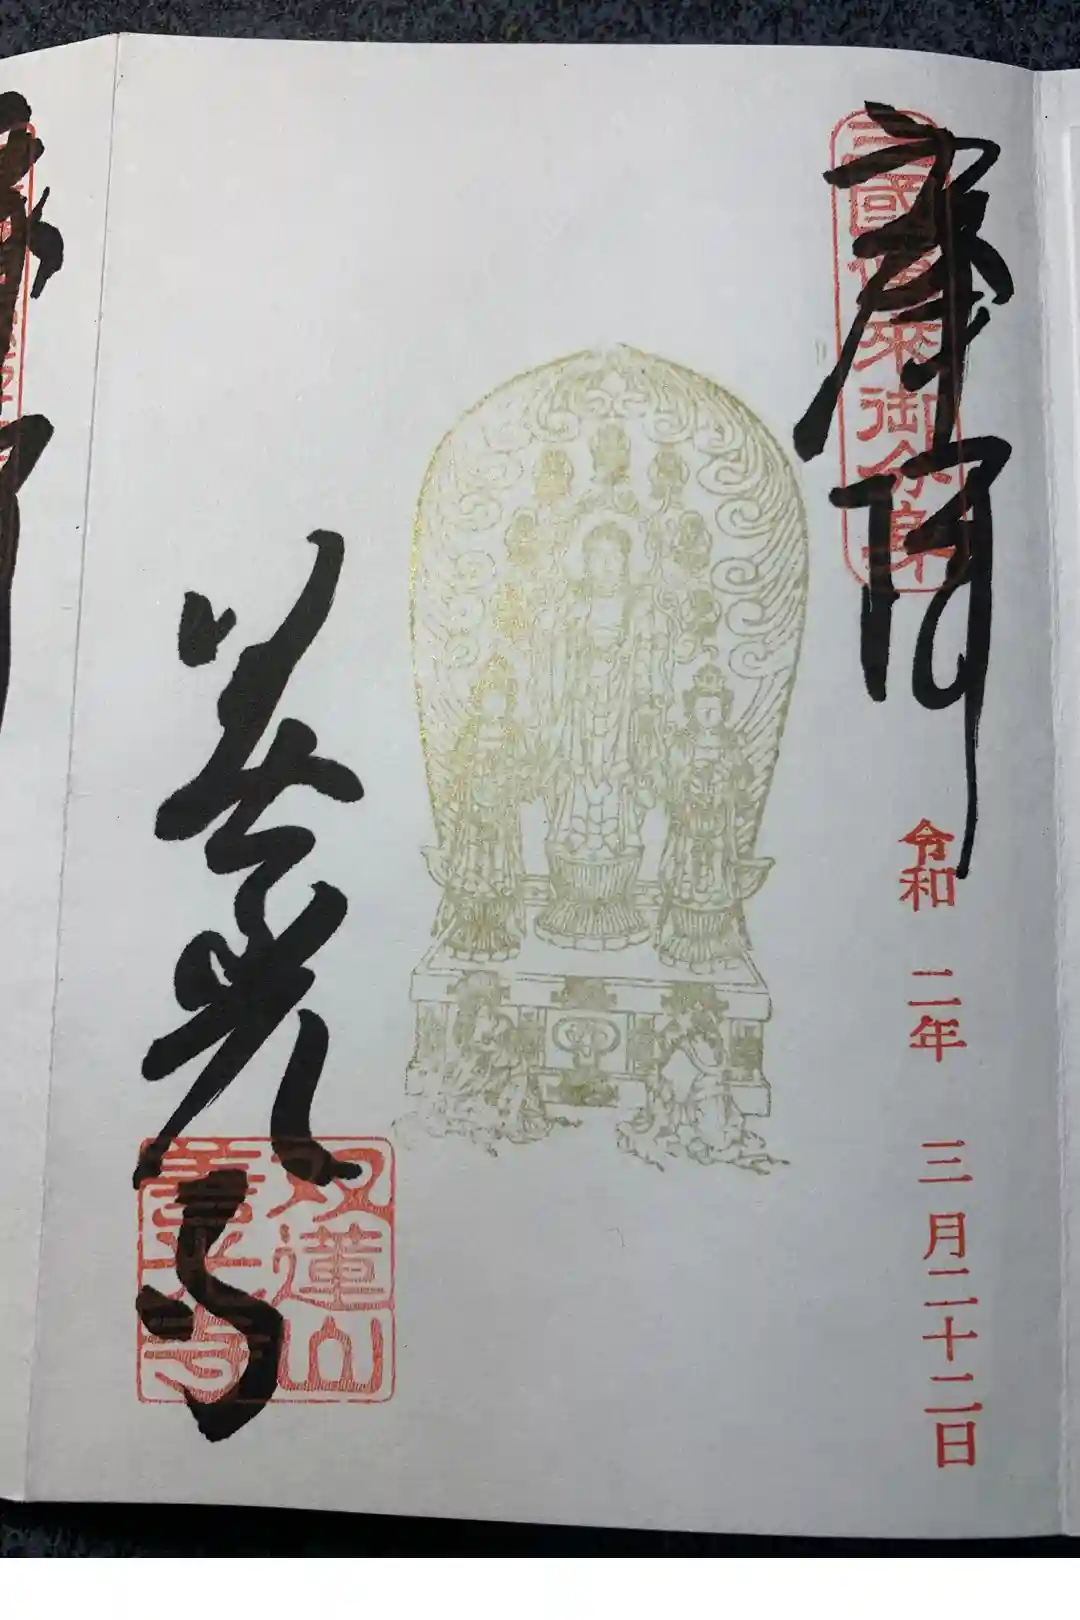 三國傳來御分身
令和 二年 三月二十二日
善光寺
双蓮山
善光寺